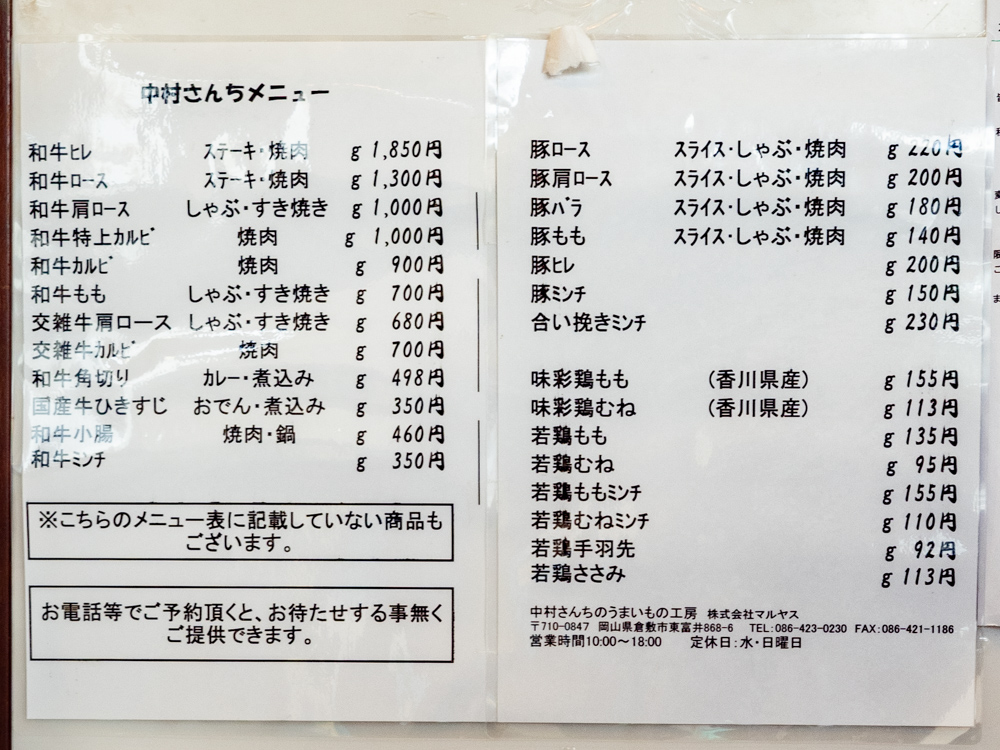 中村さんちメニュー
和牛ヒレ ステーキ・焼肉 g 1,850円
和牛ロース ステーキ・焼肉 g 1,300円
和牛肩ロース しゃぶ・すき焼き g 1,000円
和牛特上カルビ 焼肉 g 1,000円
和牛カルビ 焼肉 g 900円
和牛もも しゃぶ・すき焼き g 700円
交雑牛肩ロース しゃぶ・すき焼き g 680円
交雑牛カルビ 焼肉 g 700円
和牛角切り カレー・煮込み g 498円
国産牛ひきすじ おでん・煮込み g 350円
和牛小腸 焼肉・鍋 g 460円
和牛ミンチ g 350円
※こちらのメニュー表に記載していない商品も
ございます。
お電話等でご予約頂くと、お待たせする事無く
ご提供できます。
豚ロース スライス・しゃぶ・焼肉 g 220円
豚肩ロース スライス・しゃぶ・焼肉 g 200円
豚バラ スライス・しゃぶ・焼肉 g 180円
豚もも スライス・しゃぶ・焼肉 g 140円
豚ヒレ g 200円
豚ミンチ g 150円
合い挽きミンチ g 230円
味彩鶏もも (香川県産) g 155円
味彩鶏むね (香川県産) g 113円
若鶏もも g 135円
若鶏むね g 95円
若鶏ももミンチ g 155円
若鶏むねミンチ g 110円
若鶏手羽先 g 92円
若鶏ささみ g 113円
中村さんちのうまいもの工房 株式会社マルヤス
〒710-0847 岡山県倉敷市東富井868-6 TEL:086-423-0230 FAX:086-421-1186
営業時間10:00～18:00 定休日:水・日曜日